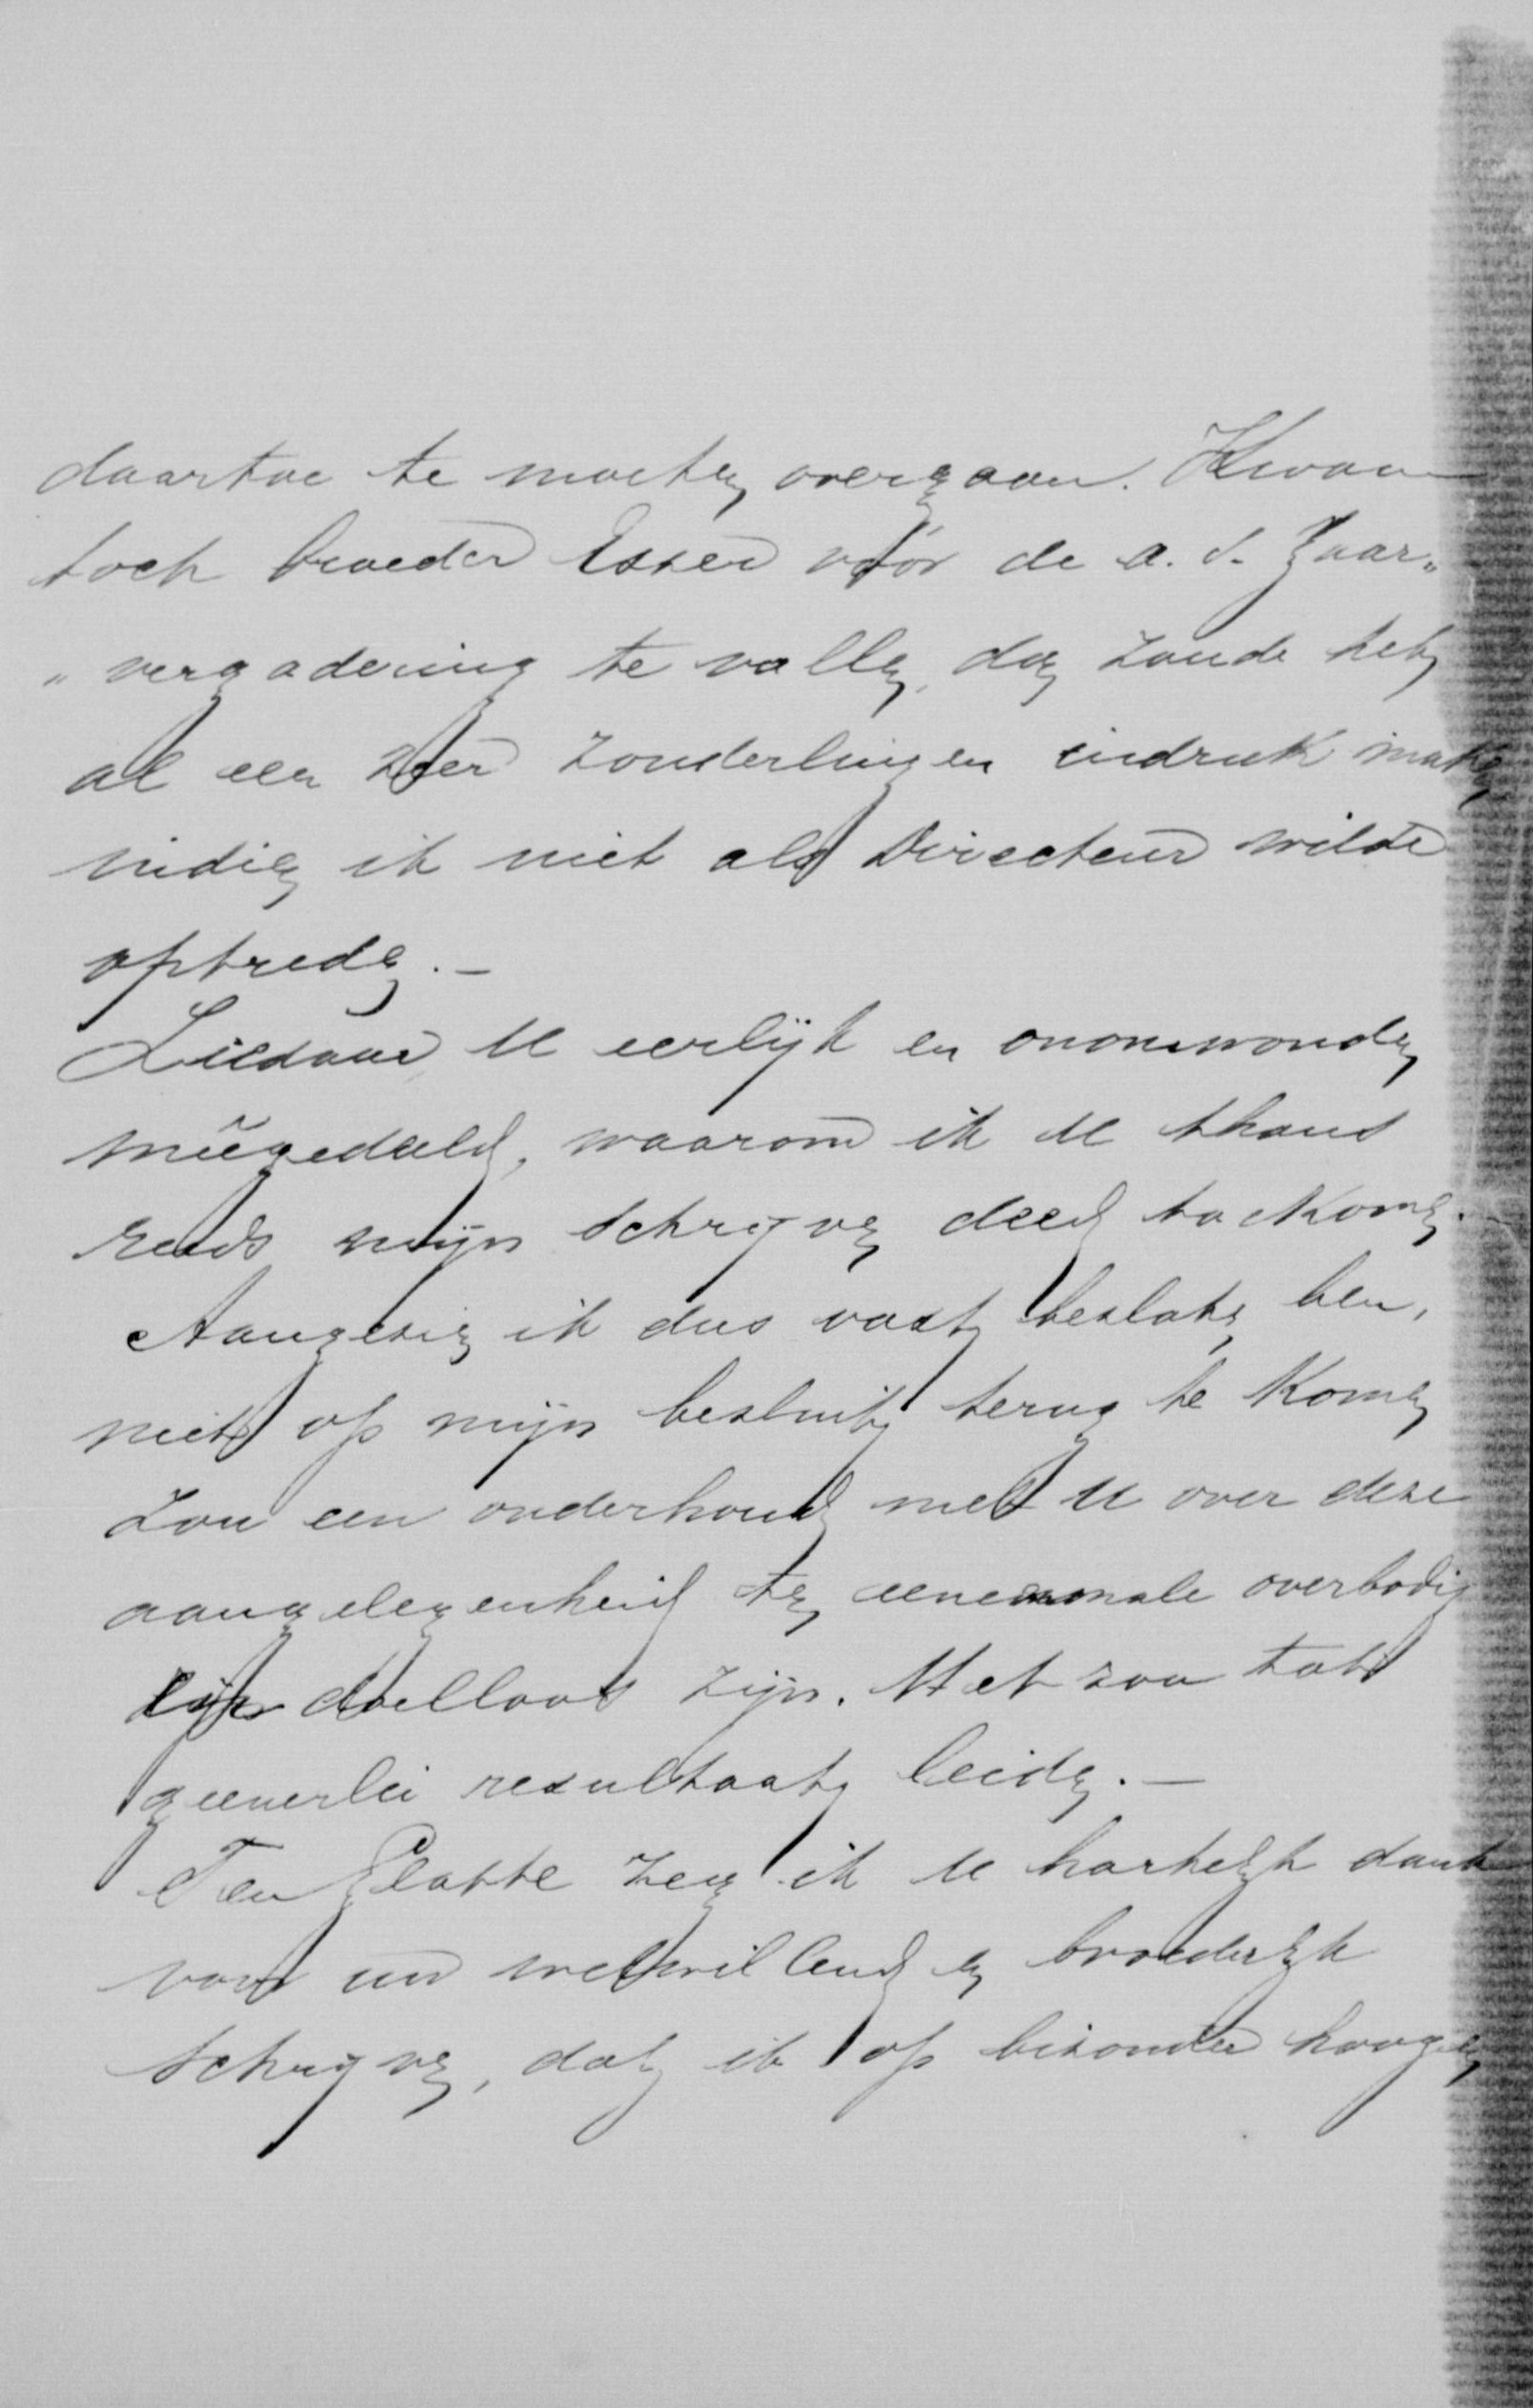 daartoe te moeten overgaan. Kwam
toch broeder Esser vóór de a. s. Jaar„
„vergadering te vallen, dan zoude het
al een zeer zonderlingen indruk maken
indien ik niet als Directeur wilde
optreden.—
Ziedaar U eerlijk en onomwonden
meegedeeld, waarom ik U thans
reeds mijn schrijven deed toekomen.
Aangezien ik dus vast besloten ben,
niet op mijn besluit terug te komen
zou een onderhoud met U over deze
aangelegenheid ten eenenmale overbodig
en doelloos zijn. Het zou tot
geenerlei resultaat leiden.—
Ten slotte zeg ik U hartelijk dank
voor uw welwillend en broederlijk
schrijven, dat ik op bizonder hoogen